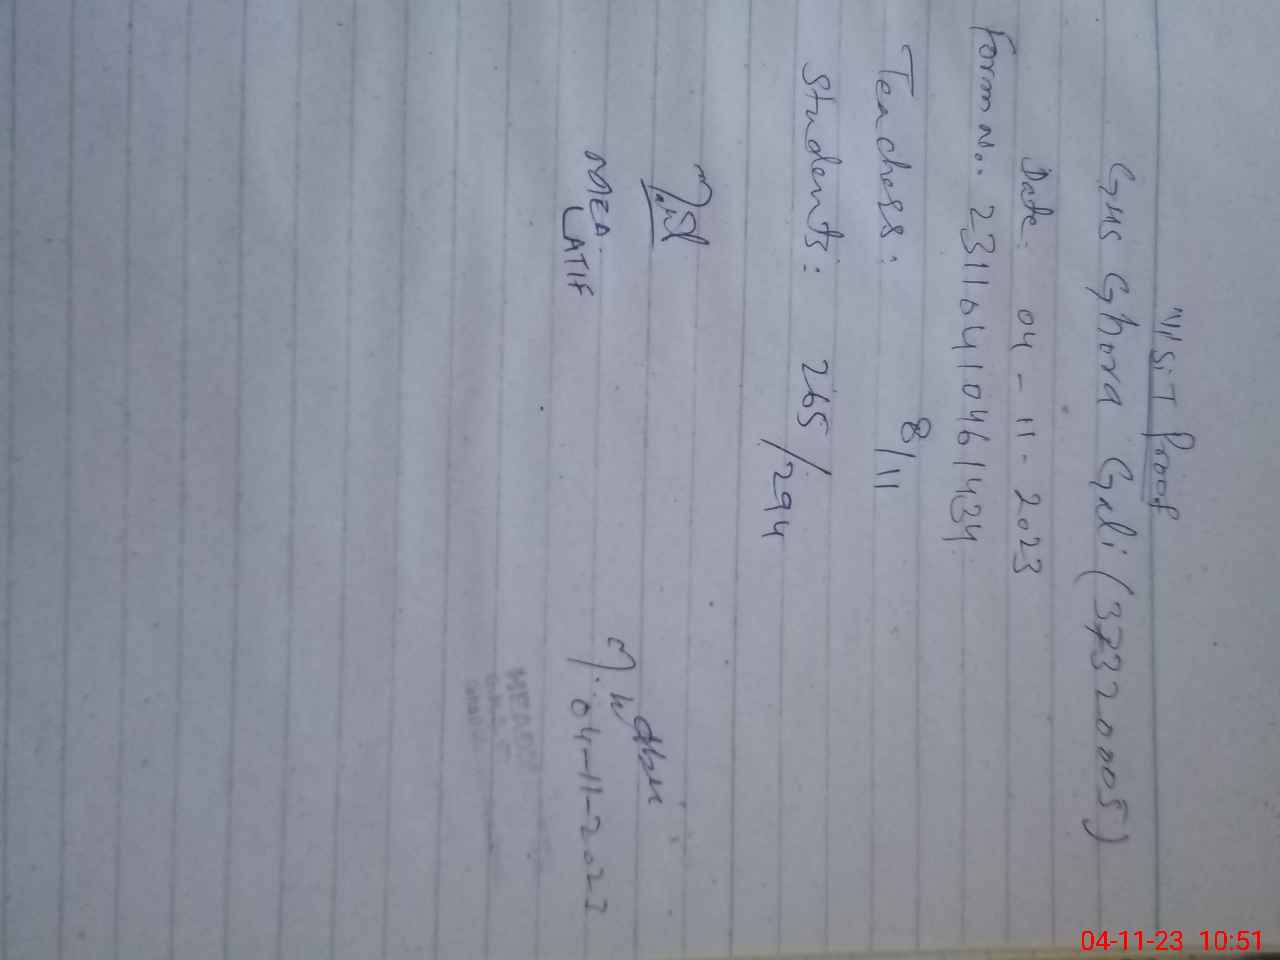 VISIT Proof
GHS Ghora Gali (37320005)
Date: 04-11-2023
Form no. 23116410461434
Teachers: 8/11
Students: 265/294
MEA.
LATIF
04-11-2023
HEAD
04-11-23 10:51